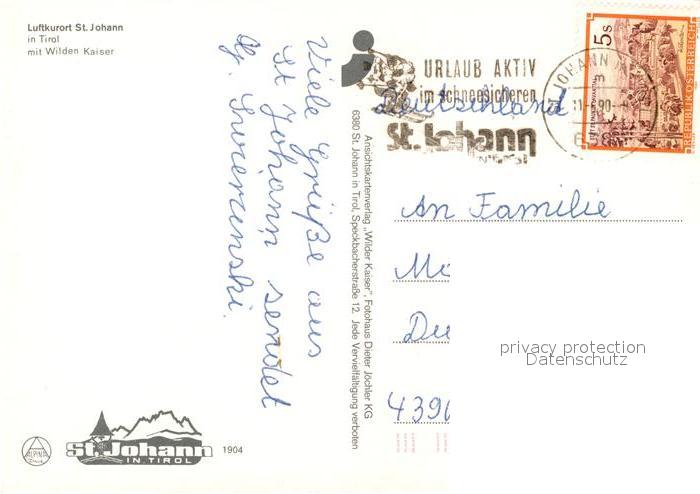 Luftkurort St. Johann
in Tirol
mit Wilden Kaiser
Viele Grüße aus
St Johann sendet
Ansichtskartenverlag „Wilder Kaiser“, Fotohaus Dieter Jöchler KG
6380 St. Johann in Tirol, Speckbacherstraße 12. Jede Vervielfältigung verboten
URLAUB AKTIV
im schneesicheren
St. Johann
IN TIROL
JOHANN
5s
REPUBLIK ÖSTERREICH
Deutschland
An Familie
439
privacy protection
Datenschutz
ALPINA
St. Johann
IN TIROL
1904